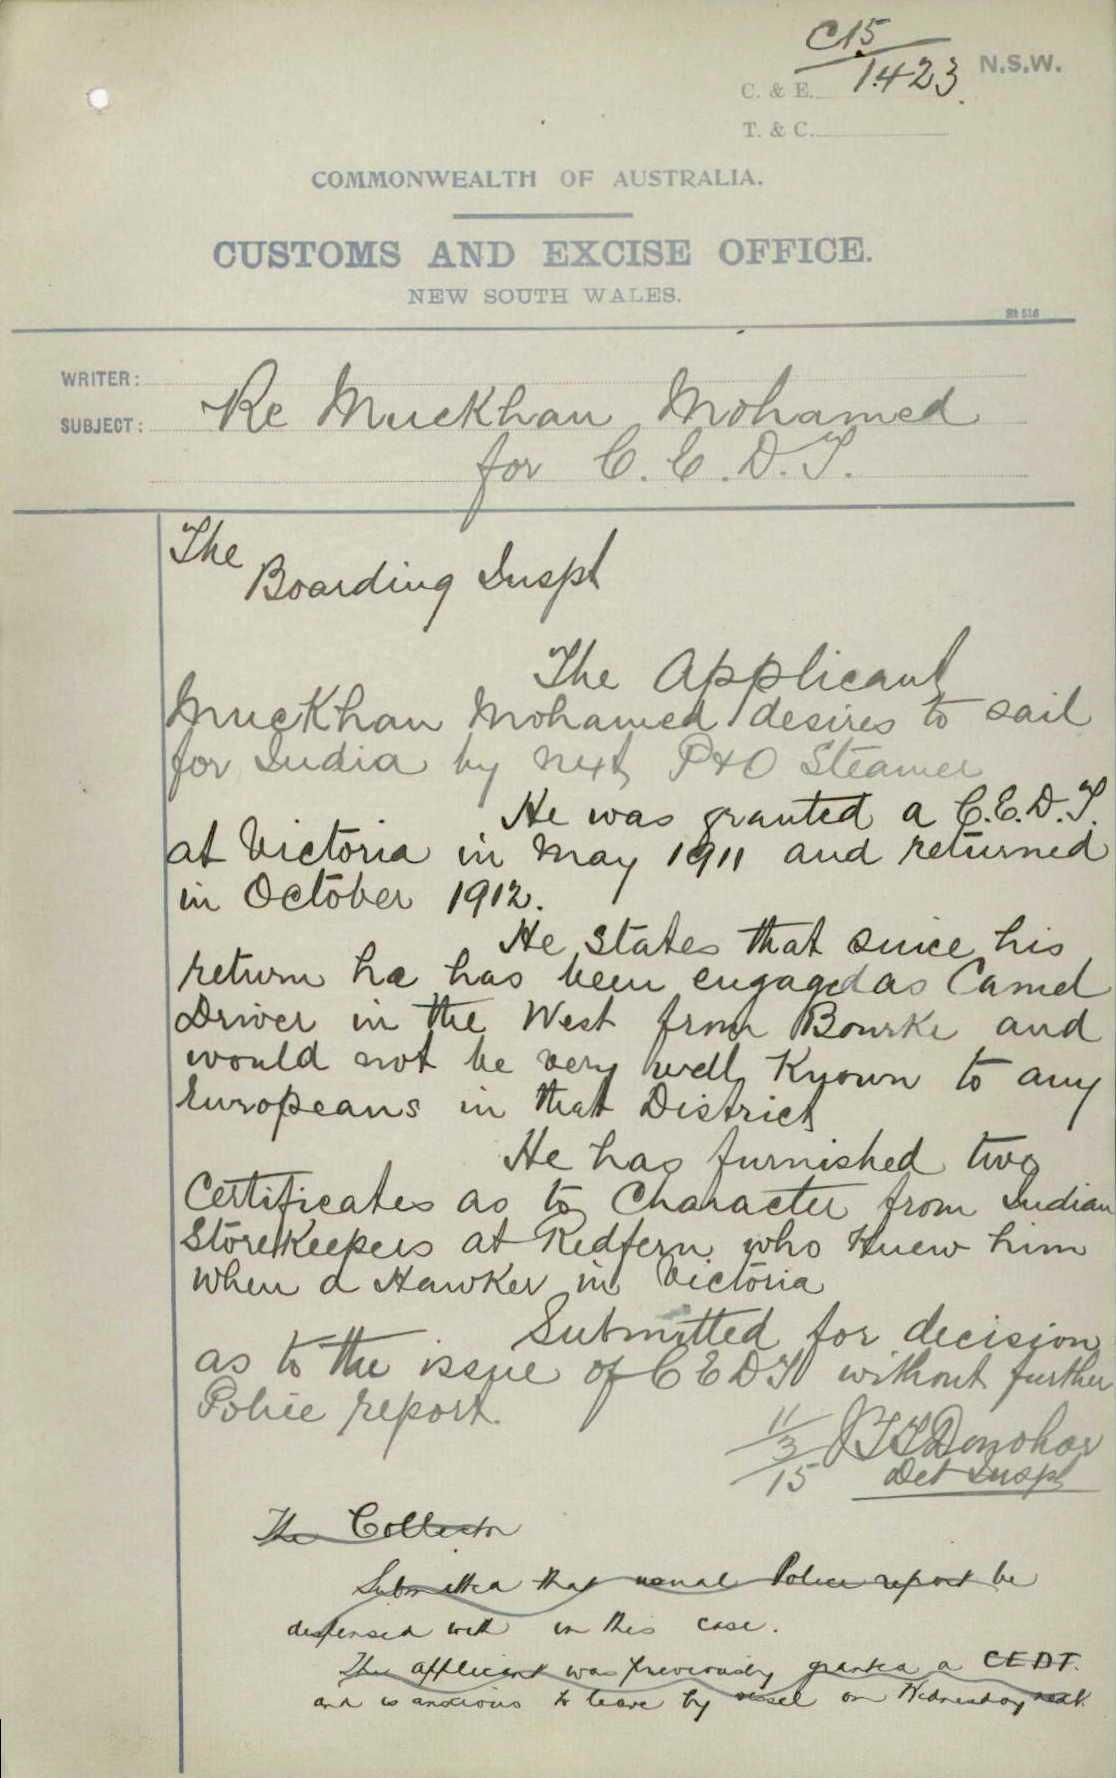 C15
1423
N.S.W.
C. & E.
T. & C.
COMMONWEALTH OF AUSTRALIA.
CUSTOMS AND EXCISE OFFICE.
NEW SOUTH WALES.
WRITER:
SUBJECT: Re Muckhan Mohamed
for C.E.D.T.
The
Boarding Inspt
The Applicant
Muckhan Mohamed desires to sail
for India by next P&O Steamer
He was granted a C.E.D.T.
at Victoria in May 1911 and returned
in October 1912.
He states that since his
return he has been engaged as Camel
Driver in the West from Bourke and
would not be very well known to any
Europeans in that District
He has furnished two
Certificates as to Character from Indian
Storekeepers at Redfern who knew him
when a Hawker in Victoria
Submitted for decision
as to the issue of CEDT without further
Police report.
11/3/15 Donohoe
Det Inspt
The Collector
Submitted that usual Police report be
dispensed with in this case.
The applicant was previously granted a CEDT.
and is anxious to leave by vessel on Wednesday next.